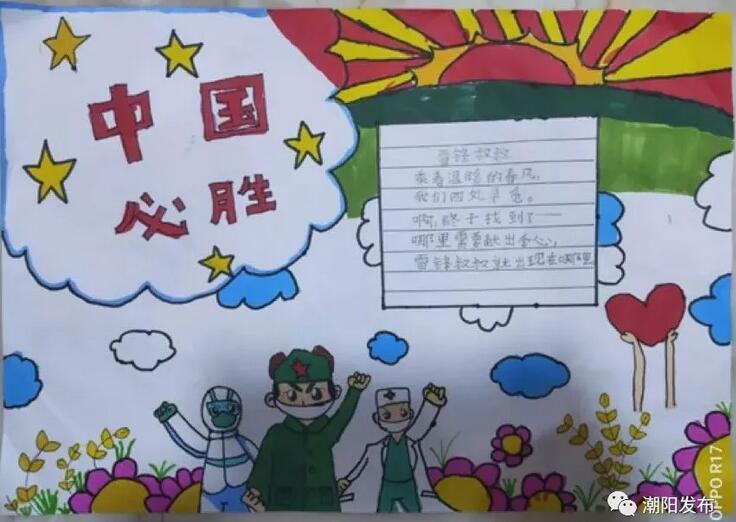 中国
必胜
雷锋叔叔
乘着温暖的春风,
我们四处寻觅。
啊,终于找到了——
哪里需要献出爱心,
雷锋叔叔就出现在哪里
OPPO R17
潮阳发布